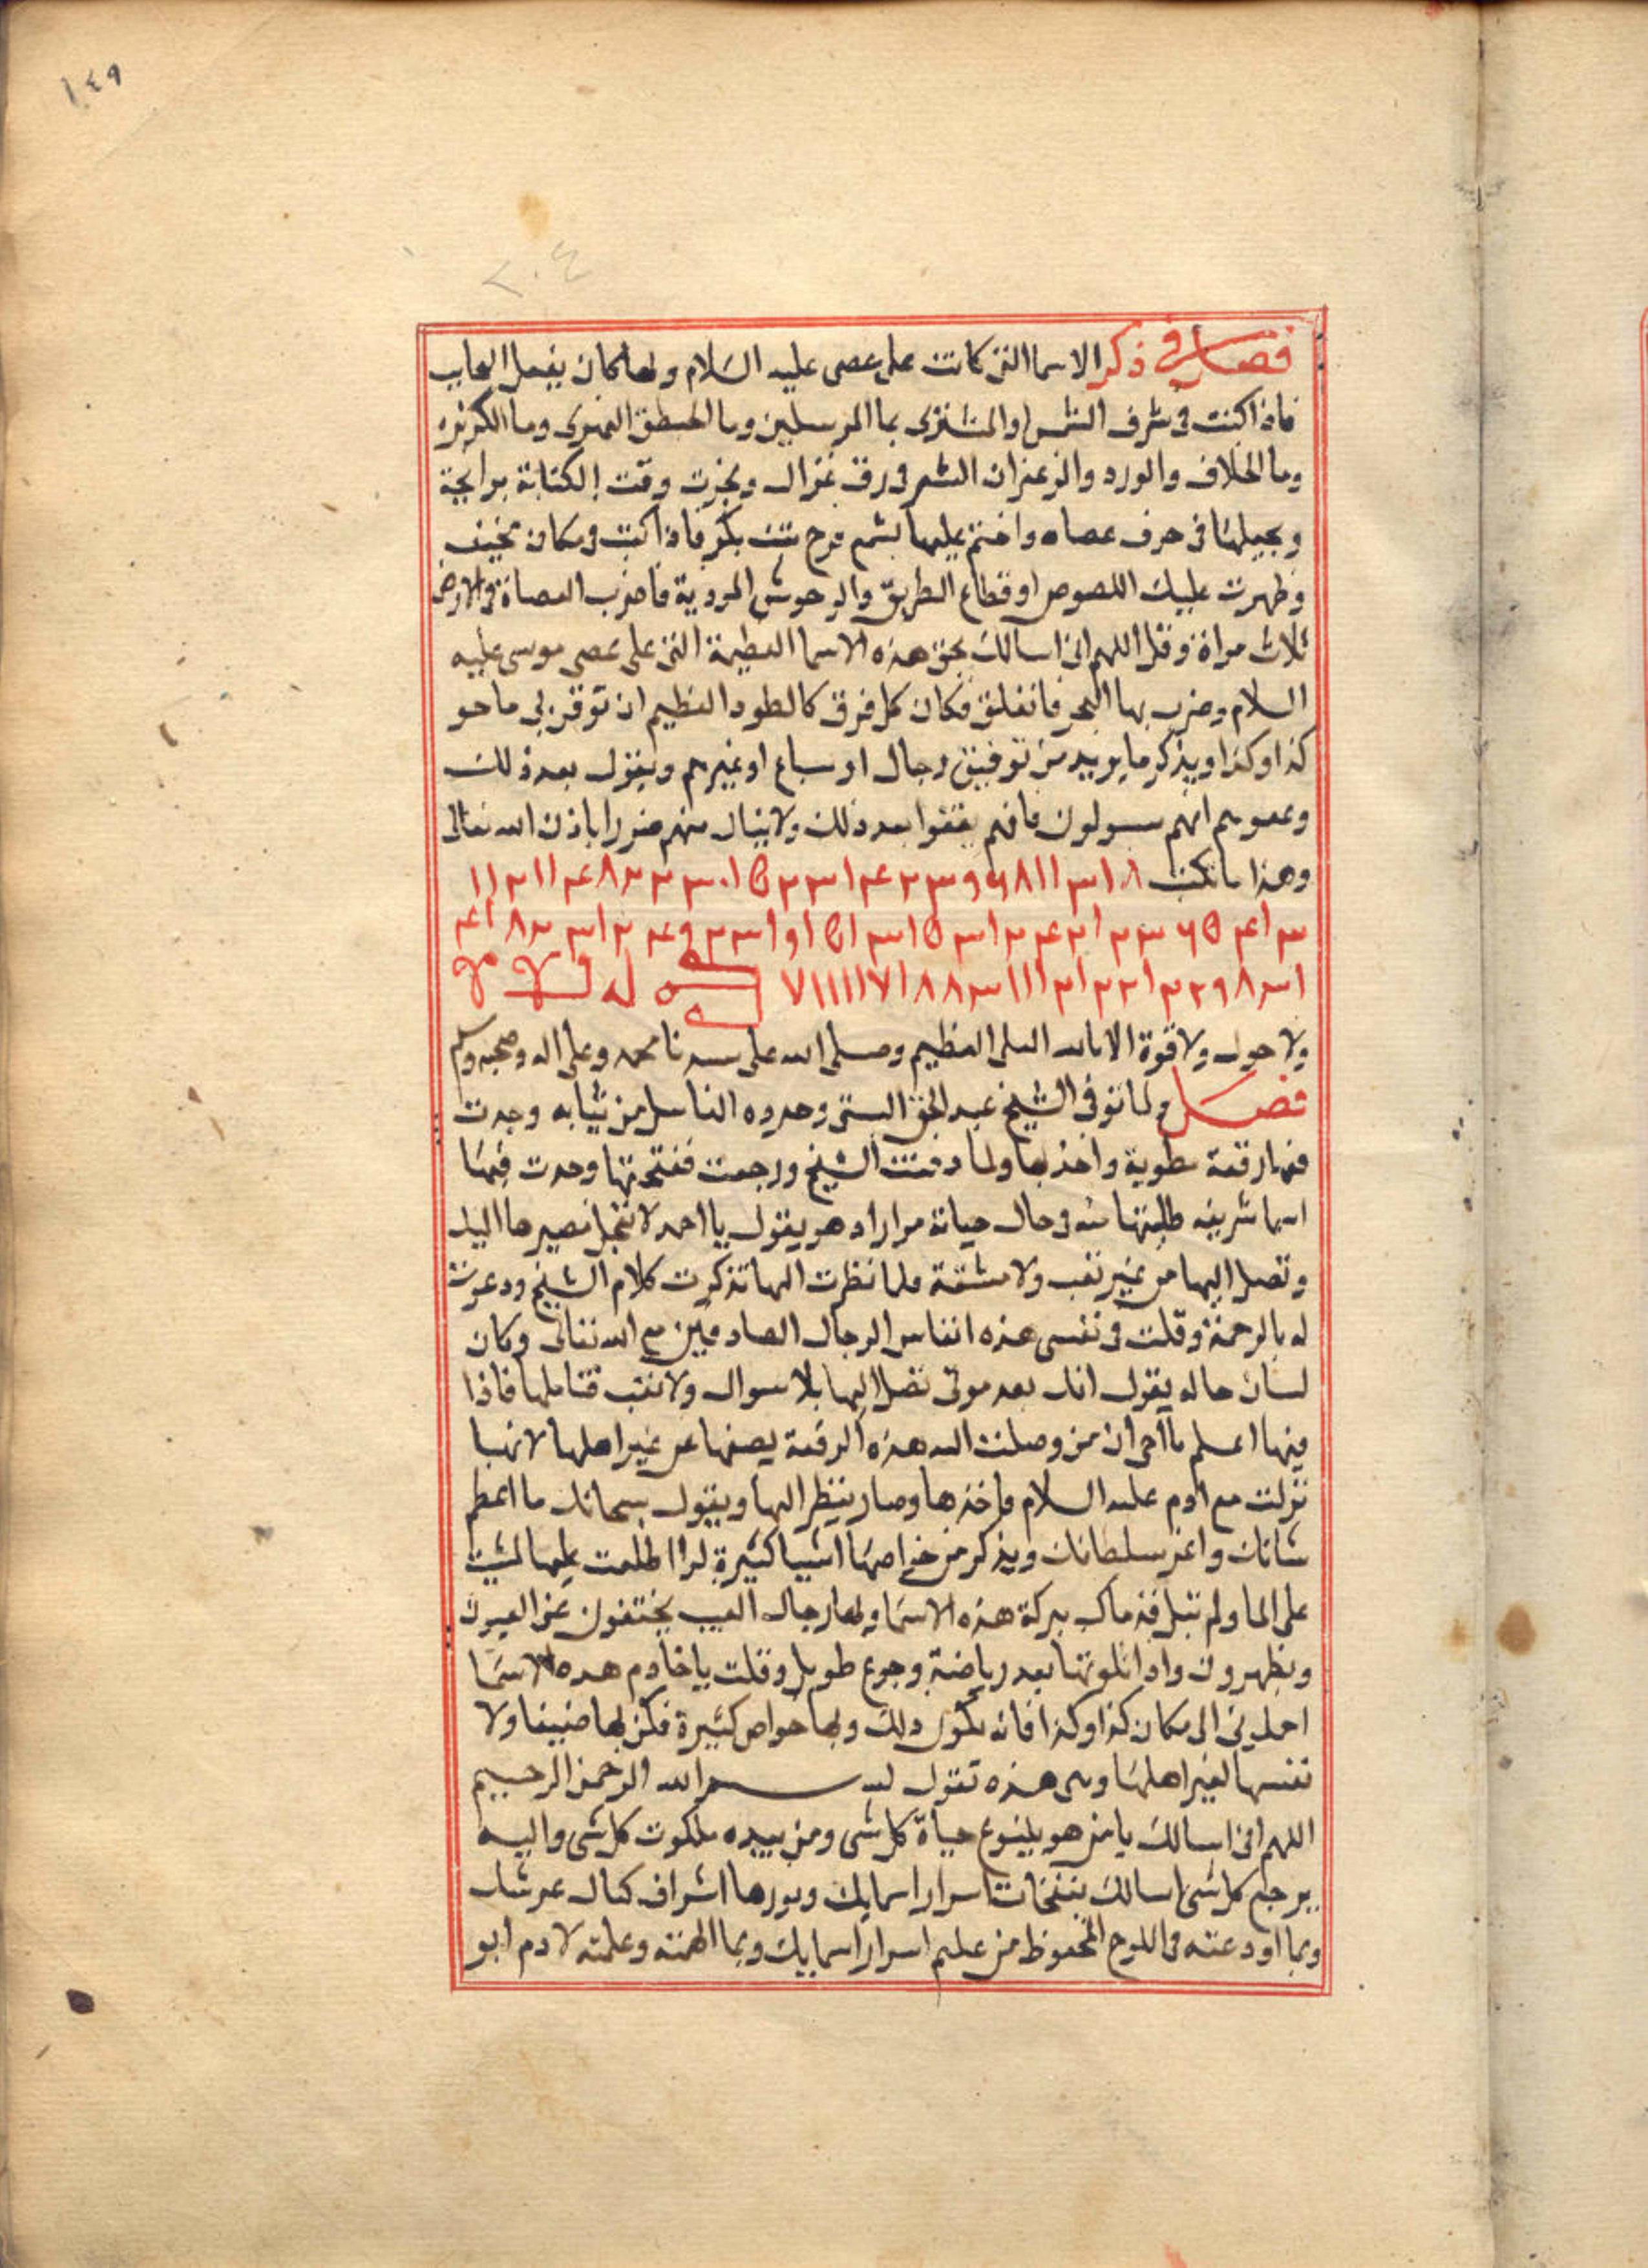 ١٤٩
٢٠٤
فصل في ذكر الاسما التي كانت على عصى عليه السلام وبها كان يفعل العجايب
فاذا كنت في شرف الشمس او المشترى بما المرسلين وما القسطق الهندى وما الكرفس
وما الخلاف والورد والزعفران الشعر في رق غزال وبخرت وقت الكتابة برايحة
ويجعلها في حرف عصاه واختم عليها بشمع فرح بنت بكر فاذا كنت في مكان مخيف
وظهرت عليك اللصوص او قطاع الطريق والوحوش المودية فاضرب العصاة في الارض
ثلاث مراة وقل اللهم انى اسالك بحق هذه الاسما العظيمة التى على عصى موسى عليه
السلام وضرب بها البحر فانفلق فكان كل فرق كالطود العظيم ان توقف لى ما هو
كذا وكذا ويذكر ما يريد من توقيف رجال او سباع او غيرهم ويقول بعد ذلك
وقفوهم انهم مسولون فانهم يقفوا بعد ذلك ولا ينال منهم ضررا باذن الله تعالى
وهذا ما تكتب
ولا حول ولا قوة الا بالله العلى العظيم وصلى الله على سيدنا محمد وعلى اله وصحبه وسلم
فصل ولما توفى الشيخ عبد الحق البستى وجردوه الغاسل من ثيابه وجدت
فيها رقعة مطوية واخذتها ولما دفنت الشيخ ورجعت ففتحتها وجدت فيها
اسما شريفه طلبتها منه في حال حياته مرارا وهو يقول يا احمد لا تعجل مصيرها اليك
وتصل اليها من غير تعب ولا مشقة فلما نظرت اليها تذكرت كلام الشيخ ودعوت
له بالرحمة وقلت في نفسى هذه انفاس الرجال الصادقين مع الله تعالى وكان
لسان حاله يقول انك بعد موتى تصل اليها بلا سوال ولا تعب فتاملها فاذا
فيها اعلم يا اخى ان من وصلت اليه هذه الرقعة يصنها عن غير اهلها لانها
نزلت مع ادم عليه السلام فاخذها وصار ينظر اليها ويقول سبحانك ما اعظم
شانك واعز سلطانك ويذكر من خواصها اشيا كثيرة لو اطلعت عليها لمشيت
على الما ولم تبل قدماك ببركة هذه الاسما وبها رجال الغيب يختفون عن العيون
ويظهرون واذا تلوتها بعد رياضة وجوع طويل وقلت يا خادم هذه الاسما
احملونى الى مكان كذا وكذا فانه يكون ذلك وبها خواص كثيرة فكن بها ضنينا ولا
تفشها لغير اهلها وهى هذه تقول بسم الله الرحمن الرحيم
اللهم انى اسالك يا من هو ينبوع حياة كل شى ومن بيده ملكوت كل شى واليه
يرجع كل شى اسالك بنفخات اسرار اسمايك ونورها اشراف كمال عرشك
وبما اودعته في اللوح المحفوظ من علم اسرار اسمايك وبما الهمته وعلمته لادم ابو